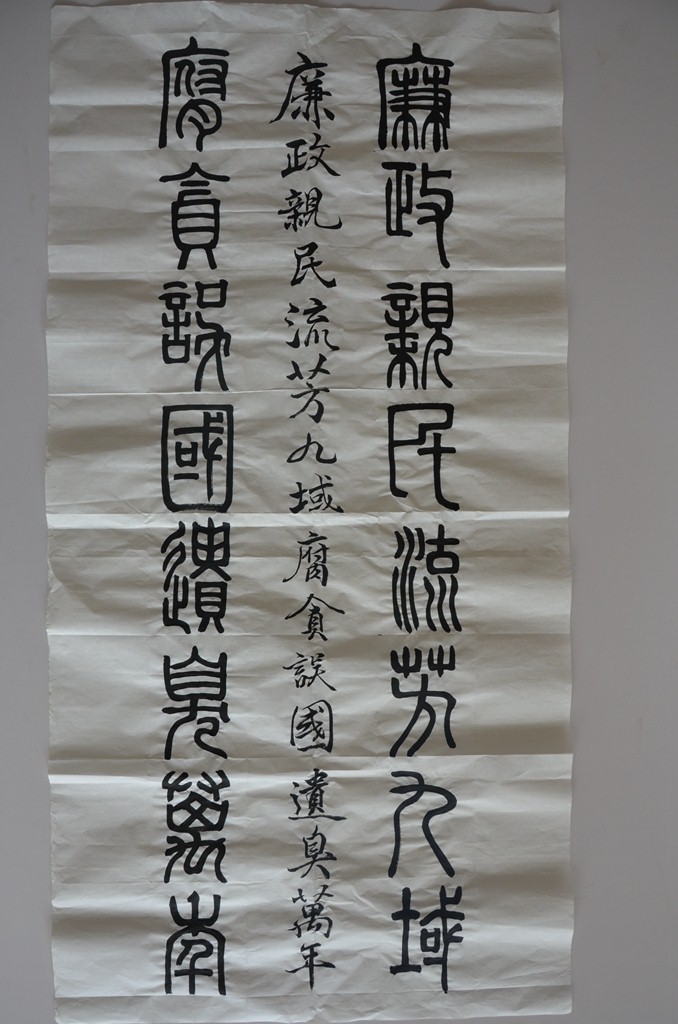 廉政親民流芳九域
廉政親民流芳九域腐貪誤國遺臭萬年
腐貪誤國遺臭萬年